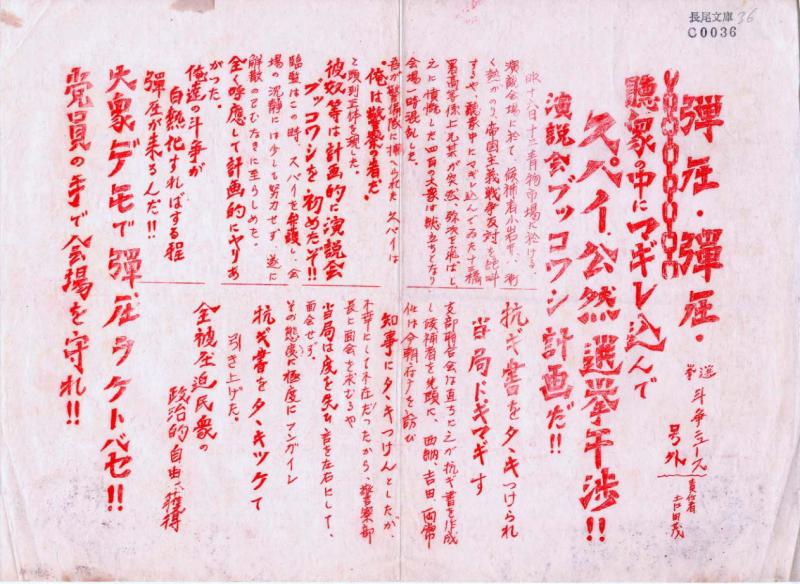 長尾文庫 36
C0036
彈圧・彈圧・
選挙 斗争ニュース 号外
責任者 吉田茂
聽衆の中にマギレ込んで
スパイ公然選挙干渉!!
演説会ブッコワシ計画だ!!
昨十六日十三青物市場に於ける、
演説会場に於て、候補者小岩井、
く熱がのり、帝国主義戦争反対を絶叫
するや、聽衆中にマギレ込んでゐた十三橋
署高等係上兄某が突然、弥次を飛ばし
之に憤慨した四百の大衆は総立ちとなり
会場一時混乱した。
吾が警備隊に捕へられたスパイは
"俺は警察の者だ"
と頭刻正体を現した。
彼奴等は計画的に演説会
ブッコワシを初めたぞ!!
臨監はこの時、スパイを弁護し、会
場の沈静には少しも努力せず、遂に
解散のやむなきに至らしめた。
全く呼應して計画的にヤリあ
がつた。
俺達の斗争が
白熱化すればする程
彈圧が来るんだ!!
抗ギ書をタヽキつけられ
当局ドギマギす
支部聯合会は直ちに之が抗ギ書を作成
し候補者を先頭に、西納 吉田 両常
任は今朝府庁を訪ひ
知事にタヽキつけんとしたが、
不幸にして不在だつたから、警察部
長に面会を求むるや
当局は度を失ひ言を左右にして、
面会せず、
その態度に極度にフンガイし
抗ギ書をタヽキツケて
引き上げた。
全被圧迫民衆の
政治的自由獲得
大衆デモで彈圧ヲケトバセ!!
党員の手で会場を守れ!!